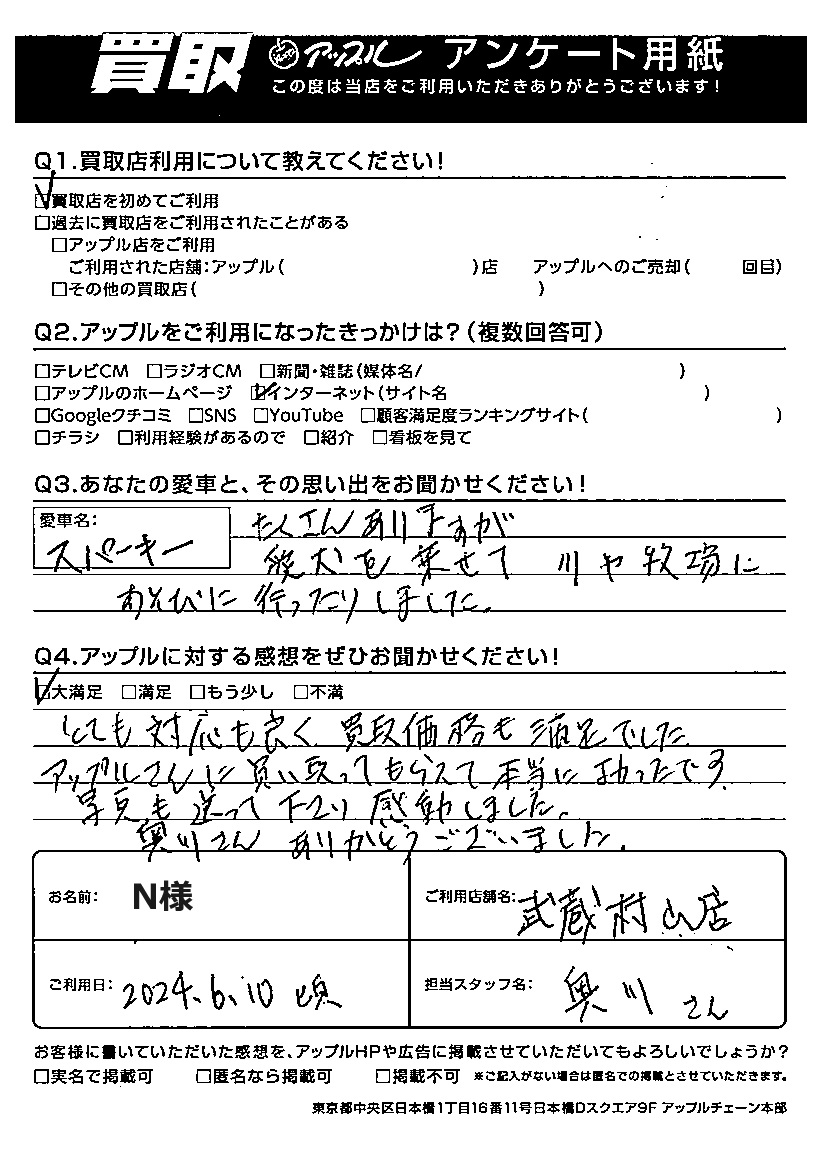 買取 アップル アンケート用紙
この度は当店をご利用いただきありがとうございます!
Q1.買取店利用について教えてください!
☑買取店を初めてご利用
□過去に買取店をご利用されたことがある
□アップル店をご利用
ご利用された店舗:アップル( )店 アップルへのご売却( 回目)
□その他の買取店( )
Q2.アップルをご利用になったきっかけは?(複数回答可)
□テレビCM □ラジオCM □新聞・雑誌(媒体名/ )
□アップルのホームページ ☑インターネット(サイト名 )
□Googleクチコミ □SNS □YouTube □顧客満足度ランキングサイト( )
□チラシ □利用経験があるので □紹介 □看板を見て
Q3.あなたの愛車と、その思い出をお聞かせください!
愛車名:
スパーキー
たくさんありますが
愛犬を乗せて 川や牧場に
あそびに行ったりしました。
Q4.アップルに対する感想をぜひお聞かせください!
☑大満足 □満足 □もう少し □不満
とても対応も良く買取価格も満足でした
アップルさんに買い取ってもらえて本当によかったです
写真も送って下さり感動しました。
奥川さん ありがとうございました。
お名前: N様
ご利用店舗名: 武蔵村山店
ご利用日: 2024.6.10頃
担当スタッフ名: 奥川さん
お客様に書いていただいた感想を、アップルHPや広告に掲載させていただいてもよろしいでしょうか?
□実名で掲載可 □匿名なら掲載可 □掲載不可 ※ご記入がない場合は匿名での掲載とさせていただきます。
東京都中央区日本橋1丁目16番11号日本橋Dスクエア9F アップルチェーン本部